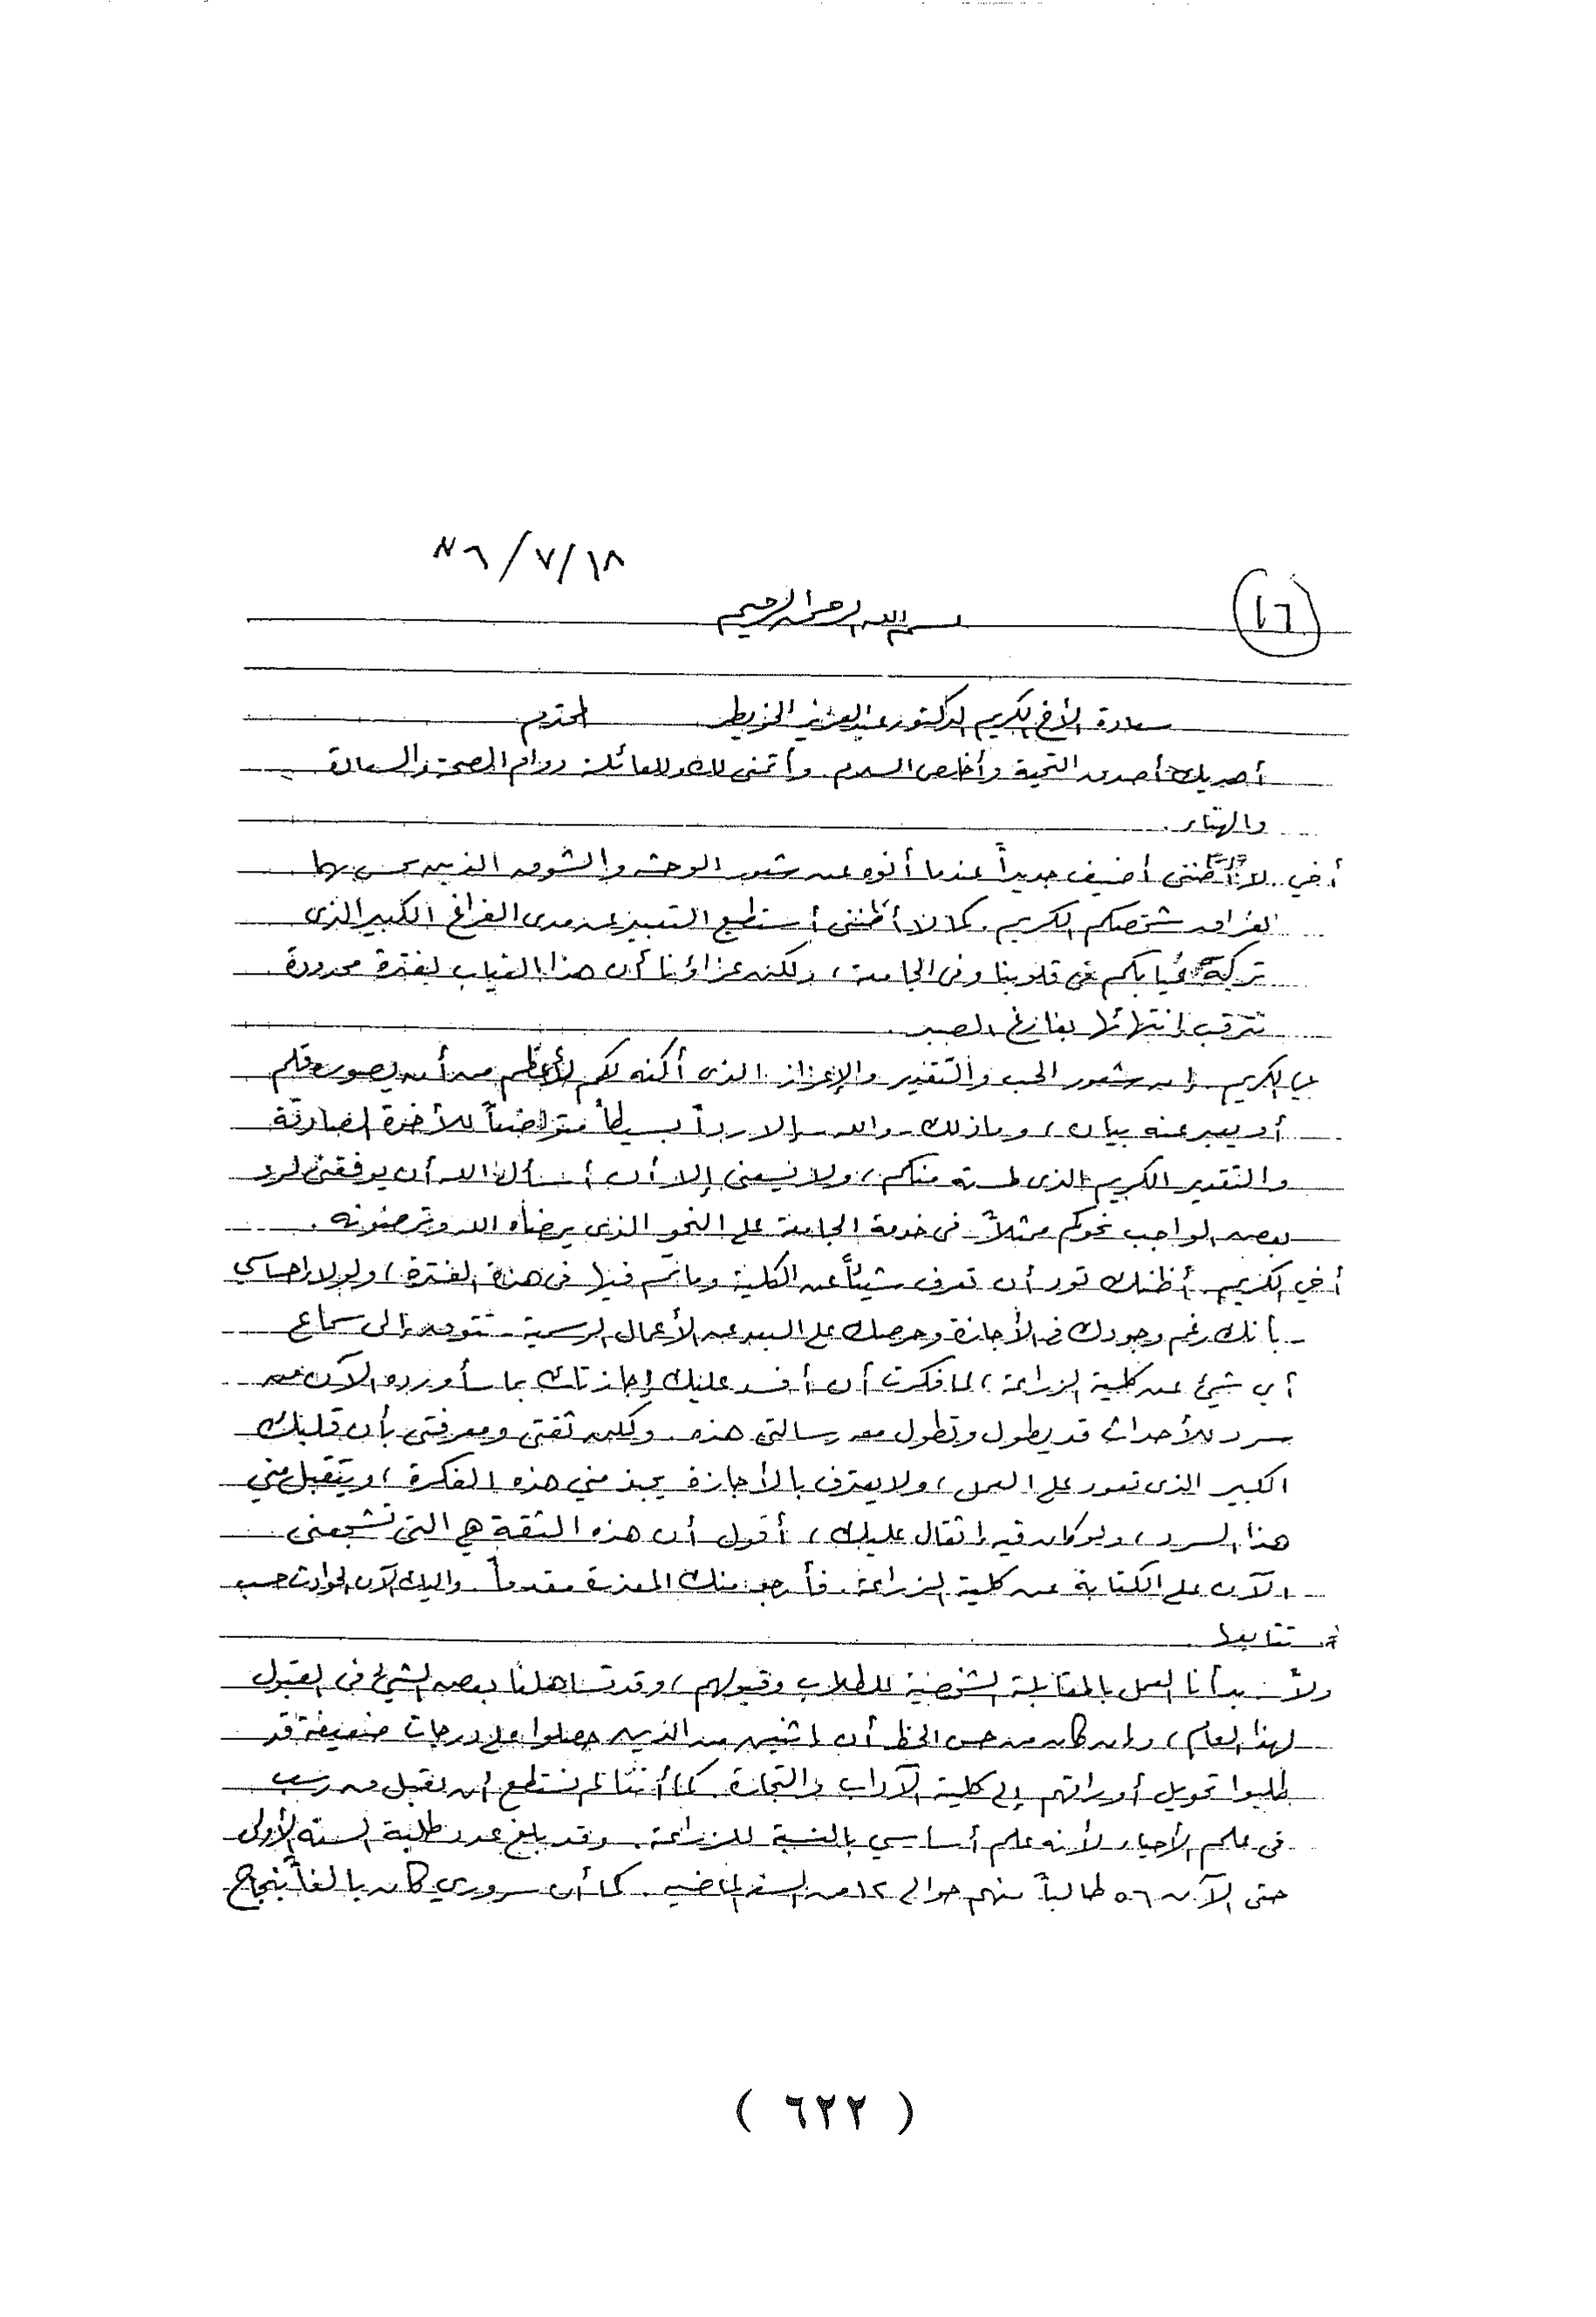 ١٨/٧/٨٦
١٦
بسم الله الرحمن الرحيم
سعادة الأخ الكريم الدكتور عبدالعزيز الخويطر المحترم
أهديك أصدق التحية وأخلص السلام. وأتمنى لك وللعائلة دوام الصحة والسعادة
والهناء.
أخي .. لا أظنني أضيف جديداً عندما أنوه عن شعور الوحشة والشوق الذين نحس بهما
لفراق شخصكم الكريم. كما لا أظنني أستطيع التعبير عن مدى الفراغ الكبير الذى
تركه غيابكم فى قلوبنا وفى الجامعة، ولكن عزاؤنا أن هذا الغياب لفترة محدودة
نترقب إنتهائها بفارغ الصبر.
الكريم .. إن شعور الحب والتقدير والإعزاز الذى أكنه لكم لأعظم من أن يصوره قلم
أو يعبر عنه بيان، وما ذلك والله إلا رداً بسيطاً متواضعاً للأخوة الصادقة
والتقدير الكريم الذى لمسته منكم، ولا يسعنى إلا أن أسأل الله أن يوفقنى لرد
بعض الواجب نحوكم ممثلاً فى خدمة الجامعة على النحو الذى يرضاه الله وترضونه.
أخي الكريم .. أظنك تود أن تعرف شيئاً عن الكلية وما تم فيها فى هذه الفترة، ولولا إحساسي
بأنك رغم وجودك فى الأجازة وحرصك على البعد عن الأعمال الرسمية - تتوق إلى سماع
أي شيئ عن كلية الزراعة، لما فكرت أن أفسد عليك إجازتك بما سأورده الآن من
سرد للأحداث قد يطول وتطول معه رسالتى هذه. ولكن ثقتى ومعرفتى بأن قلبك
الكبير الذى تعود على العمل، ولا يعترف بالأجازة يحبذ مني هذه الفكرة، ويتقبل مني
هذا السرد، ولو كان فيه إثقال عليك، أقول أن هذه الثقة هي التى تشجعنى
الآن على الكتابة عن كلية الزراعة. فأرجو منك المعذرة مقدماً. وإليك الآن الحوادث حسب
تتابعها
ولاً - بدأنا العمل بالمقابلة الشخصية للطلاب وقبولهم، وقد تساهلنا بعض الشيئ فى القبول
لهذا العام، وإن كان من حسن الحظ أن إثنين من الذين حصلوا على درجات ضعيفة قد
طلبوا تحويل أوراقهم إلى كلية الآداب والتجارة. كما أننا لم نستطع أن نقبل من رسب
فى علم الأحياء لأنه علم أساسي بالنسبة للزراعة. وقد بلغ عدد طلبة السنة الأولى
حتى الآن ٥٦ طالباً منهم حوالى ١٢ من السنة الماضية. كما أن سروري كان بالغاً بنجاح
( ٦٢٢ )